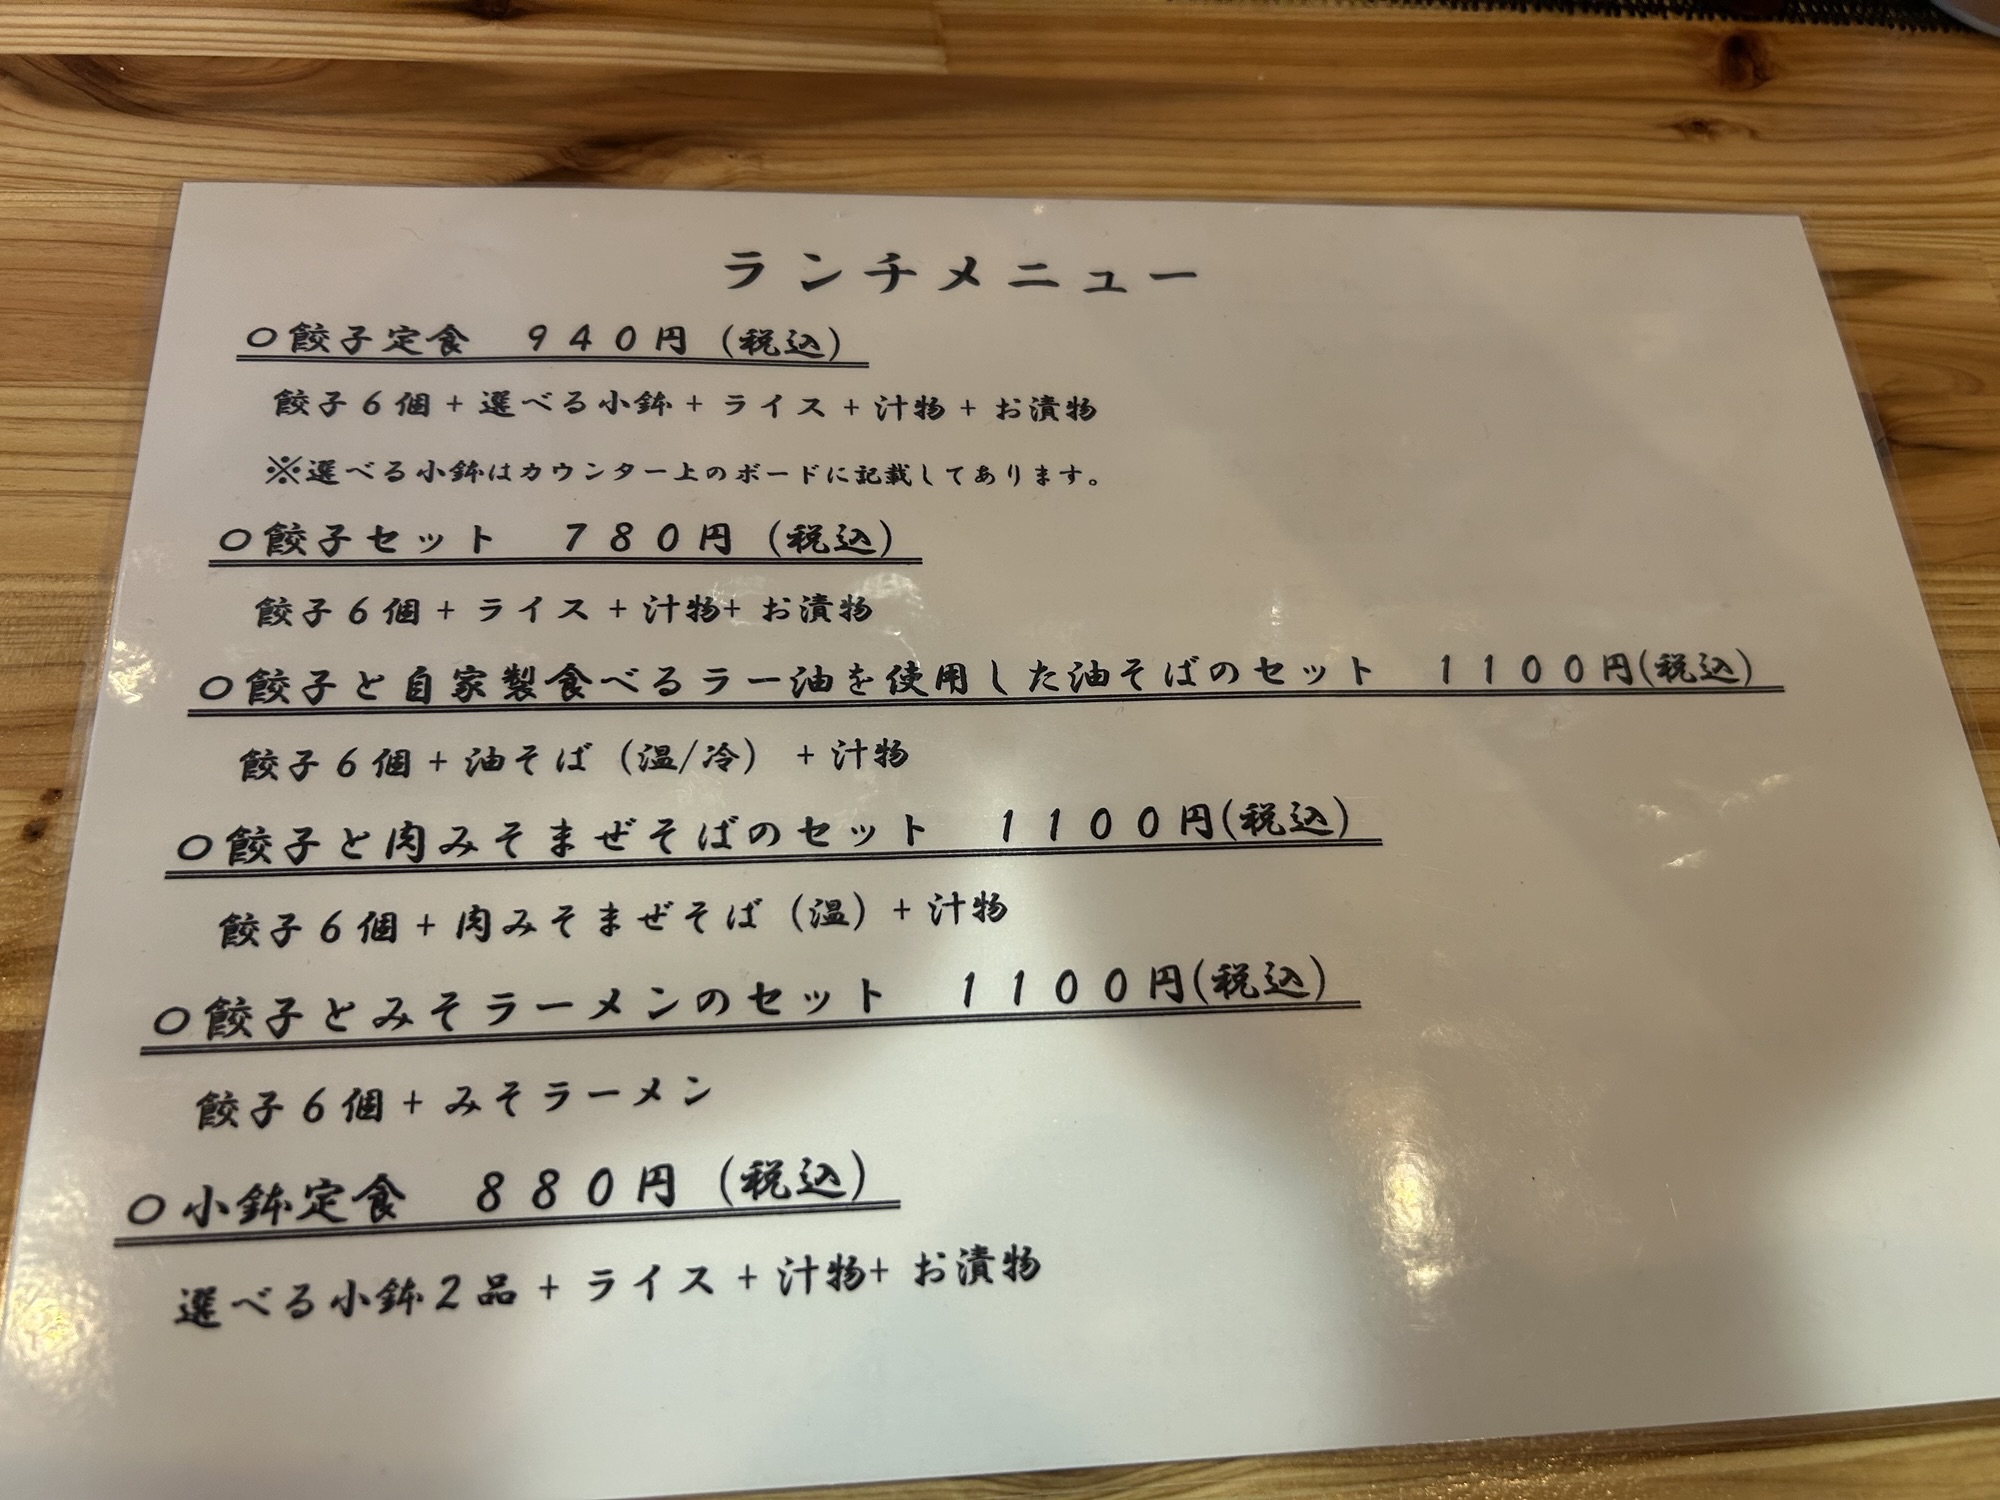 ランチメニュー
〇餃子定食　９４０円（税込）
餃子６個＋選べる小鉢＋ライス＋汁物＋お漬物
※選べる小鉢はカウンター上のボードに記載してあります。
〇餃子セット　７８０円（税込）
餃子６個＋ライス＋汁物＋お漬物
〇餃子と自家製食べるラー油を使用した油そばのセット　１１００円(税込)
餃子６個＋油そば（温/冷）＋汁物
〇餃子と肉みそまぜそばのセット　１１００円(税込)
餃子６個＋肉みそまぜそば（温）＋汁物
〇餃子とみそラーメンのセット　１１００円(税込)
餃子６個＋みそラーメン
〇小鉢定食　８８０円（税込）
選べる小鉢２品＋ライス＋汁物＋お漬物